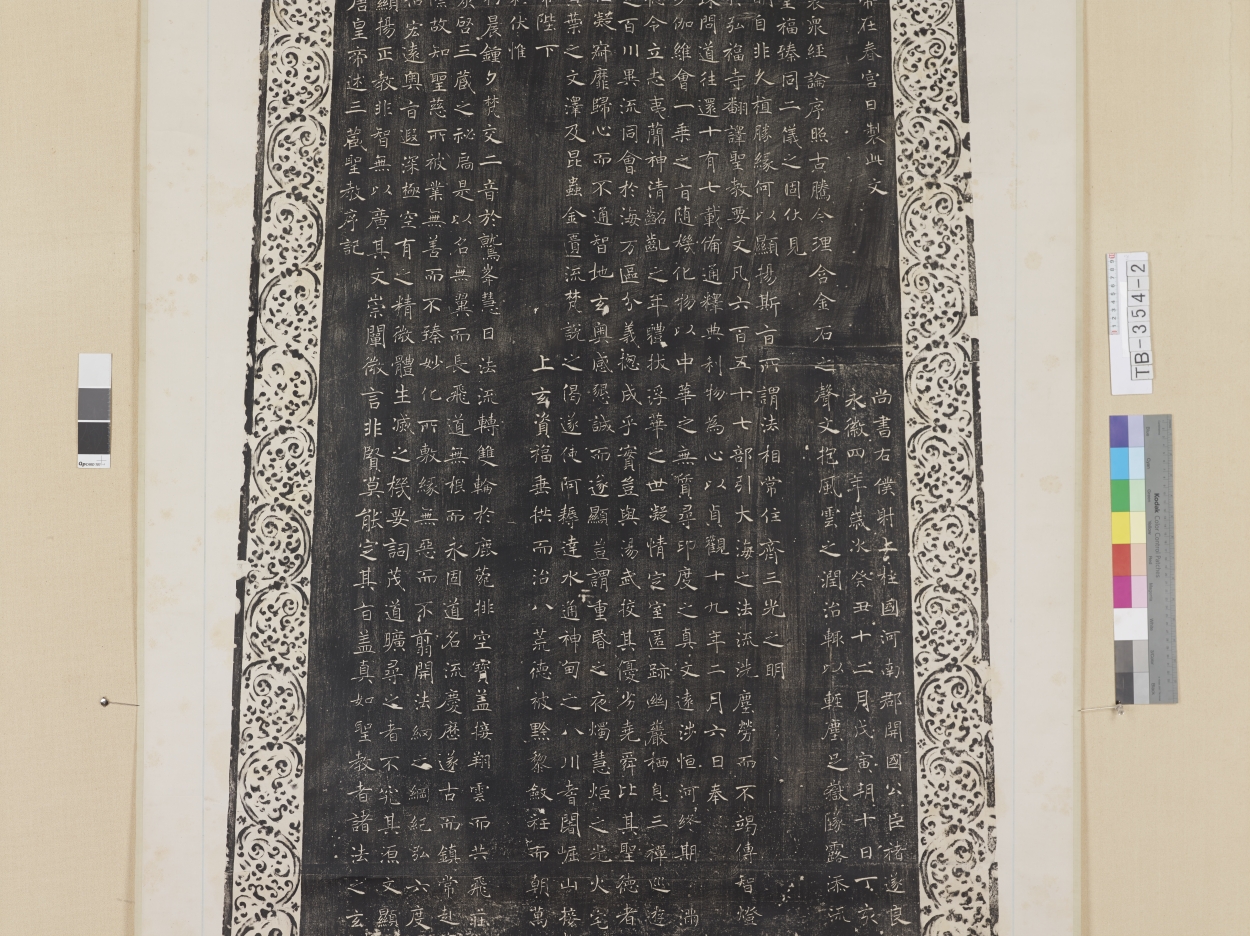 唐皇帝述三藏聖教序記
顯揚正教非智無以廣其文崇闡微言非賢莫能定其旨蓋真如聖教者諸法之玄
宏遠奧旨遐深極空有之精微體生滅之機要詞茂道曠尋之者不究其源文顯
故知聖慈所被業無善而不臻妙化所敷緣無惡而不翦開法網之綱紀弘六度
啓三藏之祕扃是以名無翼而長飛道無根而永固道名流慶歷遂古而鎮常赴
晨鍾夕梵交二音於鷲峯慧日法流轉雙輪於鹿菀排空寶蓋接翔雲而共飛莊
伏惟
陛下上玄資福垂拱而治八荒德被黔黎斂衽而朝萬
葉之文澤及昆蟲金匱流梵說之偈遂使阿耨達水通神甸之八川耆闍崛山接
凝寂靡歸心而不通智地玄奧感懇誠而遂顯豈謂重昏之夜燭慧炬之光火宅
之百川異流同會於海万區分義揔成乎實豈與湯武挍其優劣堯舜比其聖德者
令立志夷簡神清齠齔之年體拔浮華之世凝情定室匿跡幽巖栖息三禪巡遊
伽維會一乘之旨隨機化物以中華之無質尋印度之真文遠涉恒河終期滿
問道往還十有七載備通釋典利物為心以貞觀十九年二月六日奉
弘福寺翻譯聖教要文凡六百五十七部引大海之法流洗塵勞而不竭傳智燈
自非久植勝緣何以顯揚斯旨所謂法相常住齊三光之明
皇福臻同二儀之固伏見
眾經論序照古騰今理含金石之聲文抱風雲之潤治輒以輕塵足嶽墜露添流
帝在春宮日製此文
永徽四年歲次癸丑十二月戊寅朔十日丁亥
尚書右僕射上柱國河南郡開國公臣褚遂良
TB-354-2
Kodak Color Control Patches